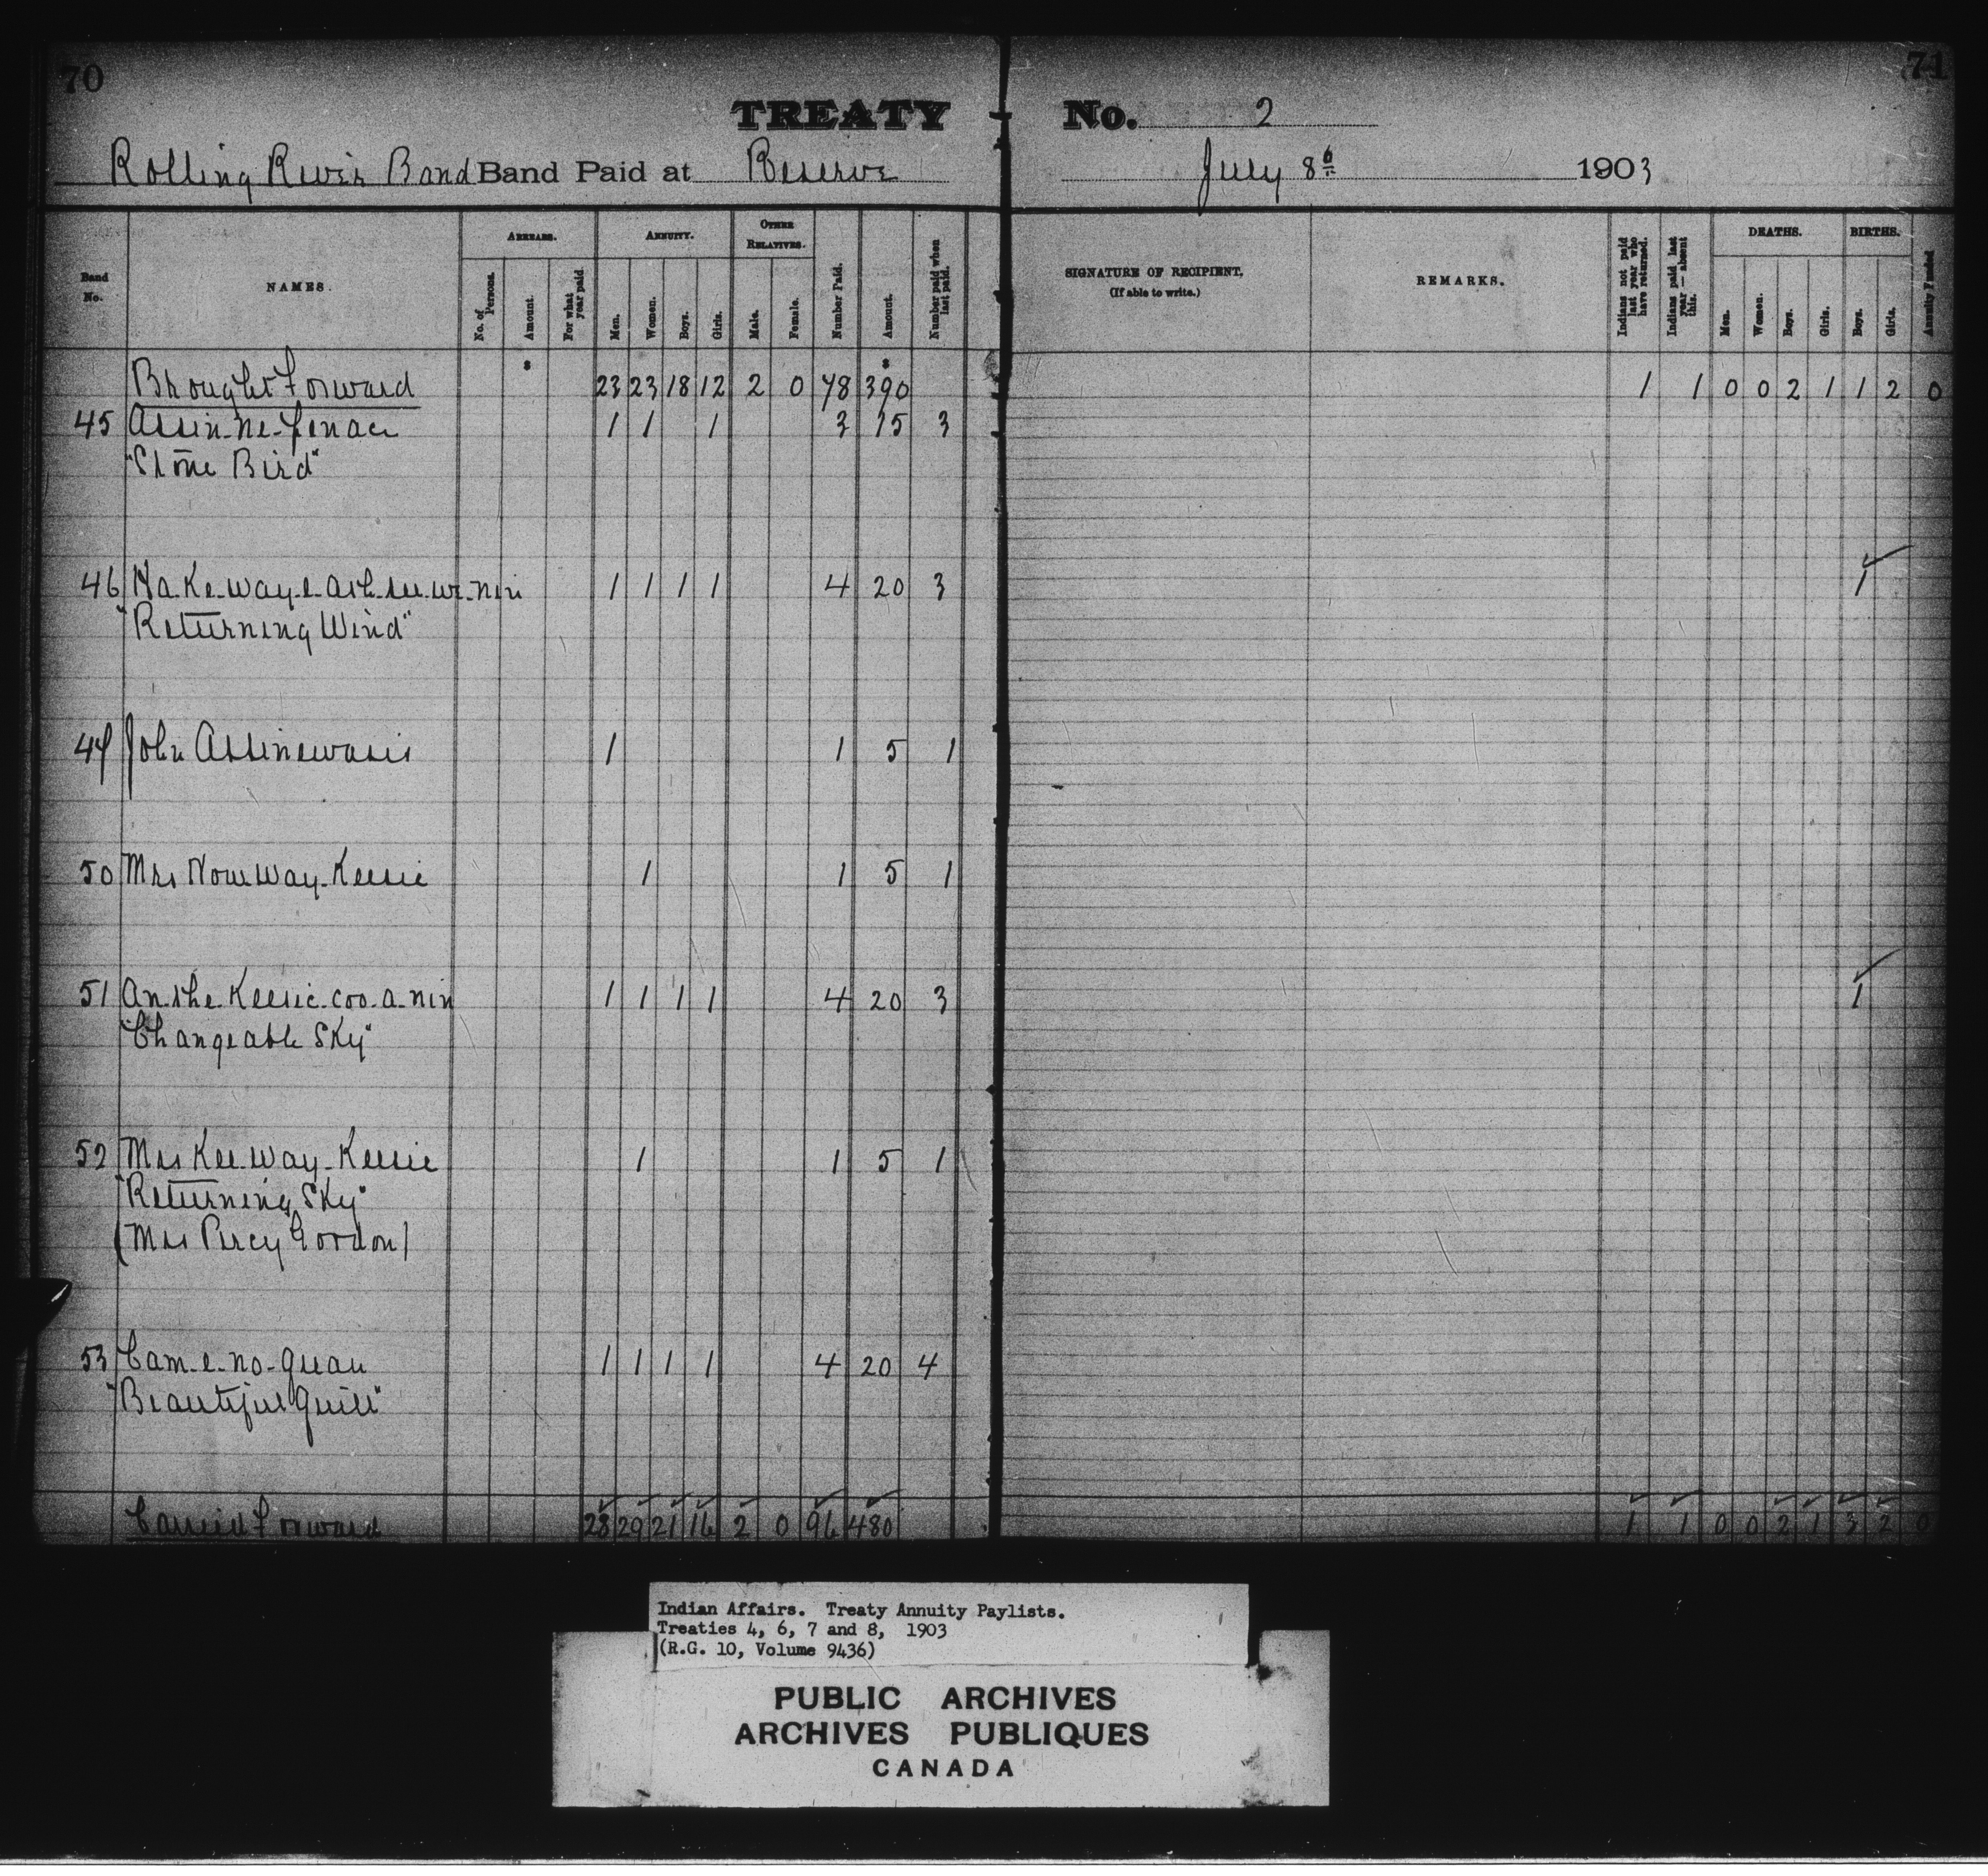 70
71
TREATY No. 2
Rolling River Band Band Paid at Reserve July 8th 1903
Band No.
NAMES.
ARREARS.
No. of Persons.
Amount.
For what year paid.
ANNUITY.
Men.
Women.
Boys.
Girls.
OTHER RELATIVES.
Male.
Female.
Number Paid.
Amount.
Number paid when last paid.
SIGNATURE OF RECIPIENT.
(If able to write.)
REMARKS.
Indians not paid last year who have returned.
Indians paid last year — absent this.
DEATHS.
Men.
Women.
Boys.
Girls.
BIRTHS.
Boys.
Girls.
Annuity Funded
$ $
Brought Forward 23 23 18 12 2 0 78 390 1 1 0 0 2 1 1 2 0
45 Assin-ne-penace 1 1 1 3 15 3
"Stone Bird"
46 Na-Ke-way-e-ash-see-we-nin 1 1 1 1 4 20 3 1
"Returning Wind"
John Assinewasis 1 1 5 1
50 Mrs Now way-Keesic 1 1 5 1
51 An-she-Keesic-coo-a-nin 1 1 1 1 4 20 3 1
"Changeable Sky"
52 Mrs Kee-way-Keesic 1 1 5 1
"Returning Sky"
(Mrs Percy Gordon)
53 Cam-e-no-quan 1 1 1 1 4 20 4
"Beautiful Quill"
Carried Forward 28 29 21 16 2 0 96 480 1 1 0 0 2 1 3 2 0
Indian Affairs. Treaty Annuity Paylists.
Treaties 4, 6, 7 and 8, 1903
(R.G. 10, Volume 9436)
PUBLIC ARCHIVES
ARCHIVES PUBLIQUES
CANADA